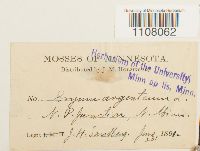 University of Minnesota Herbarium
1108062
MOSSES OF MINNESOTA.
Distributed by J. M.
Herbarium of the University,
Minn po lis, Minn.
No. Bryum argenteum L.
N. P. Junction, Minn.
Legit: J. H. Sandberg. 1891.